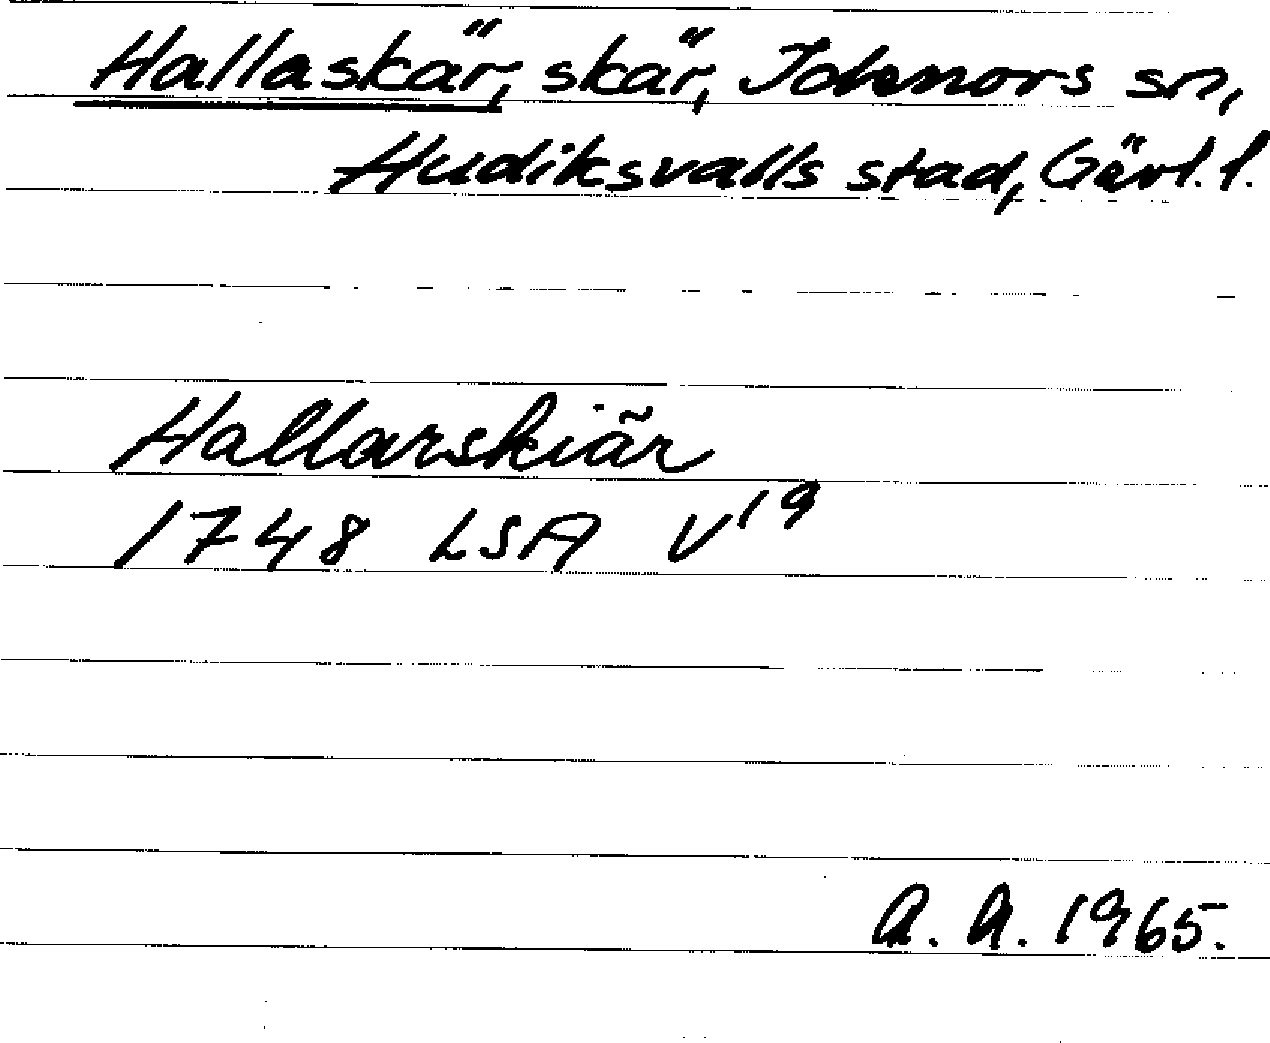 Hallaskär, skär, Idenors sn,
Hudiksvalls stad, Gävl. l.
Hallarskiär
1748 LSA V¹⁹
A. A. 1965.